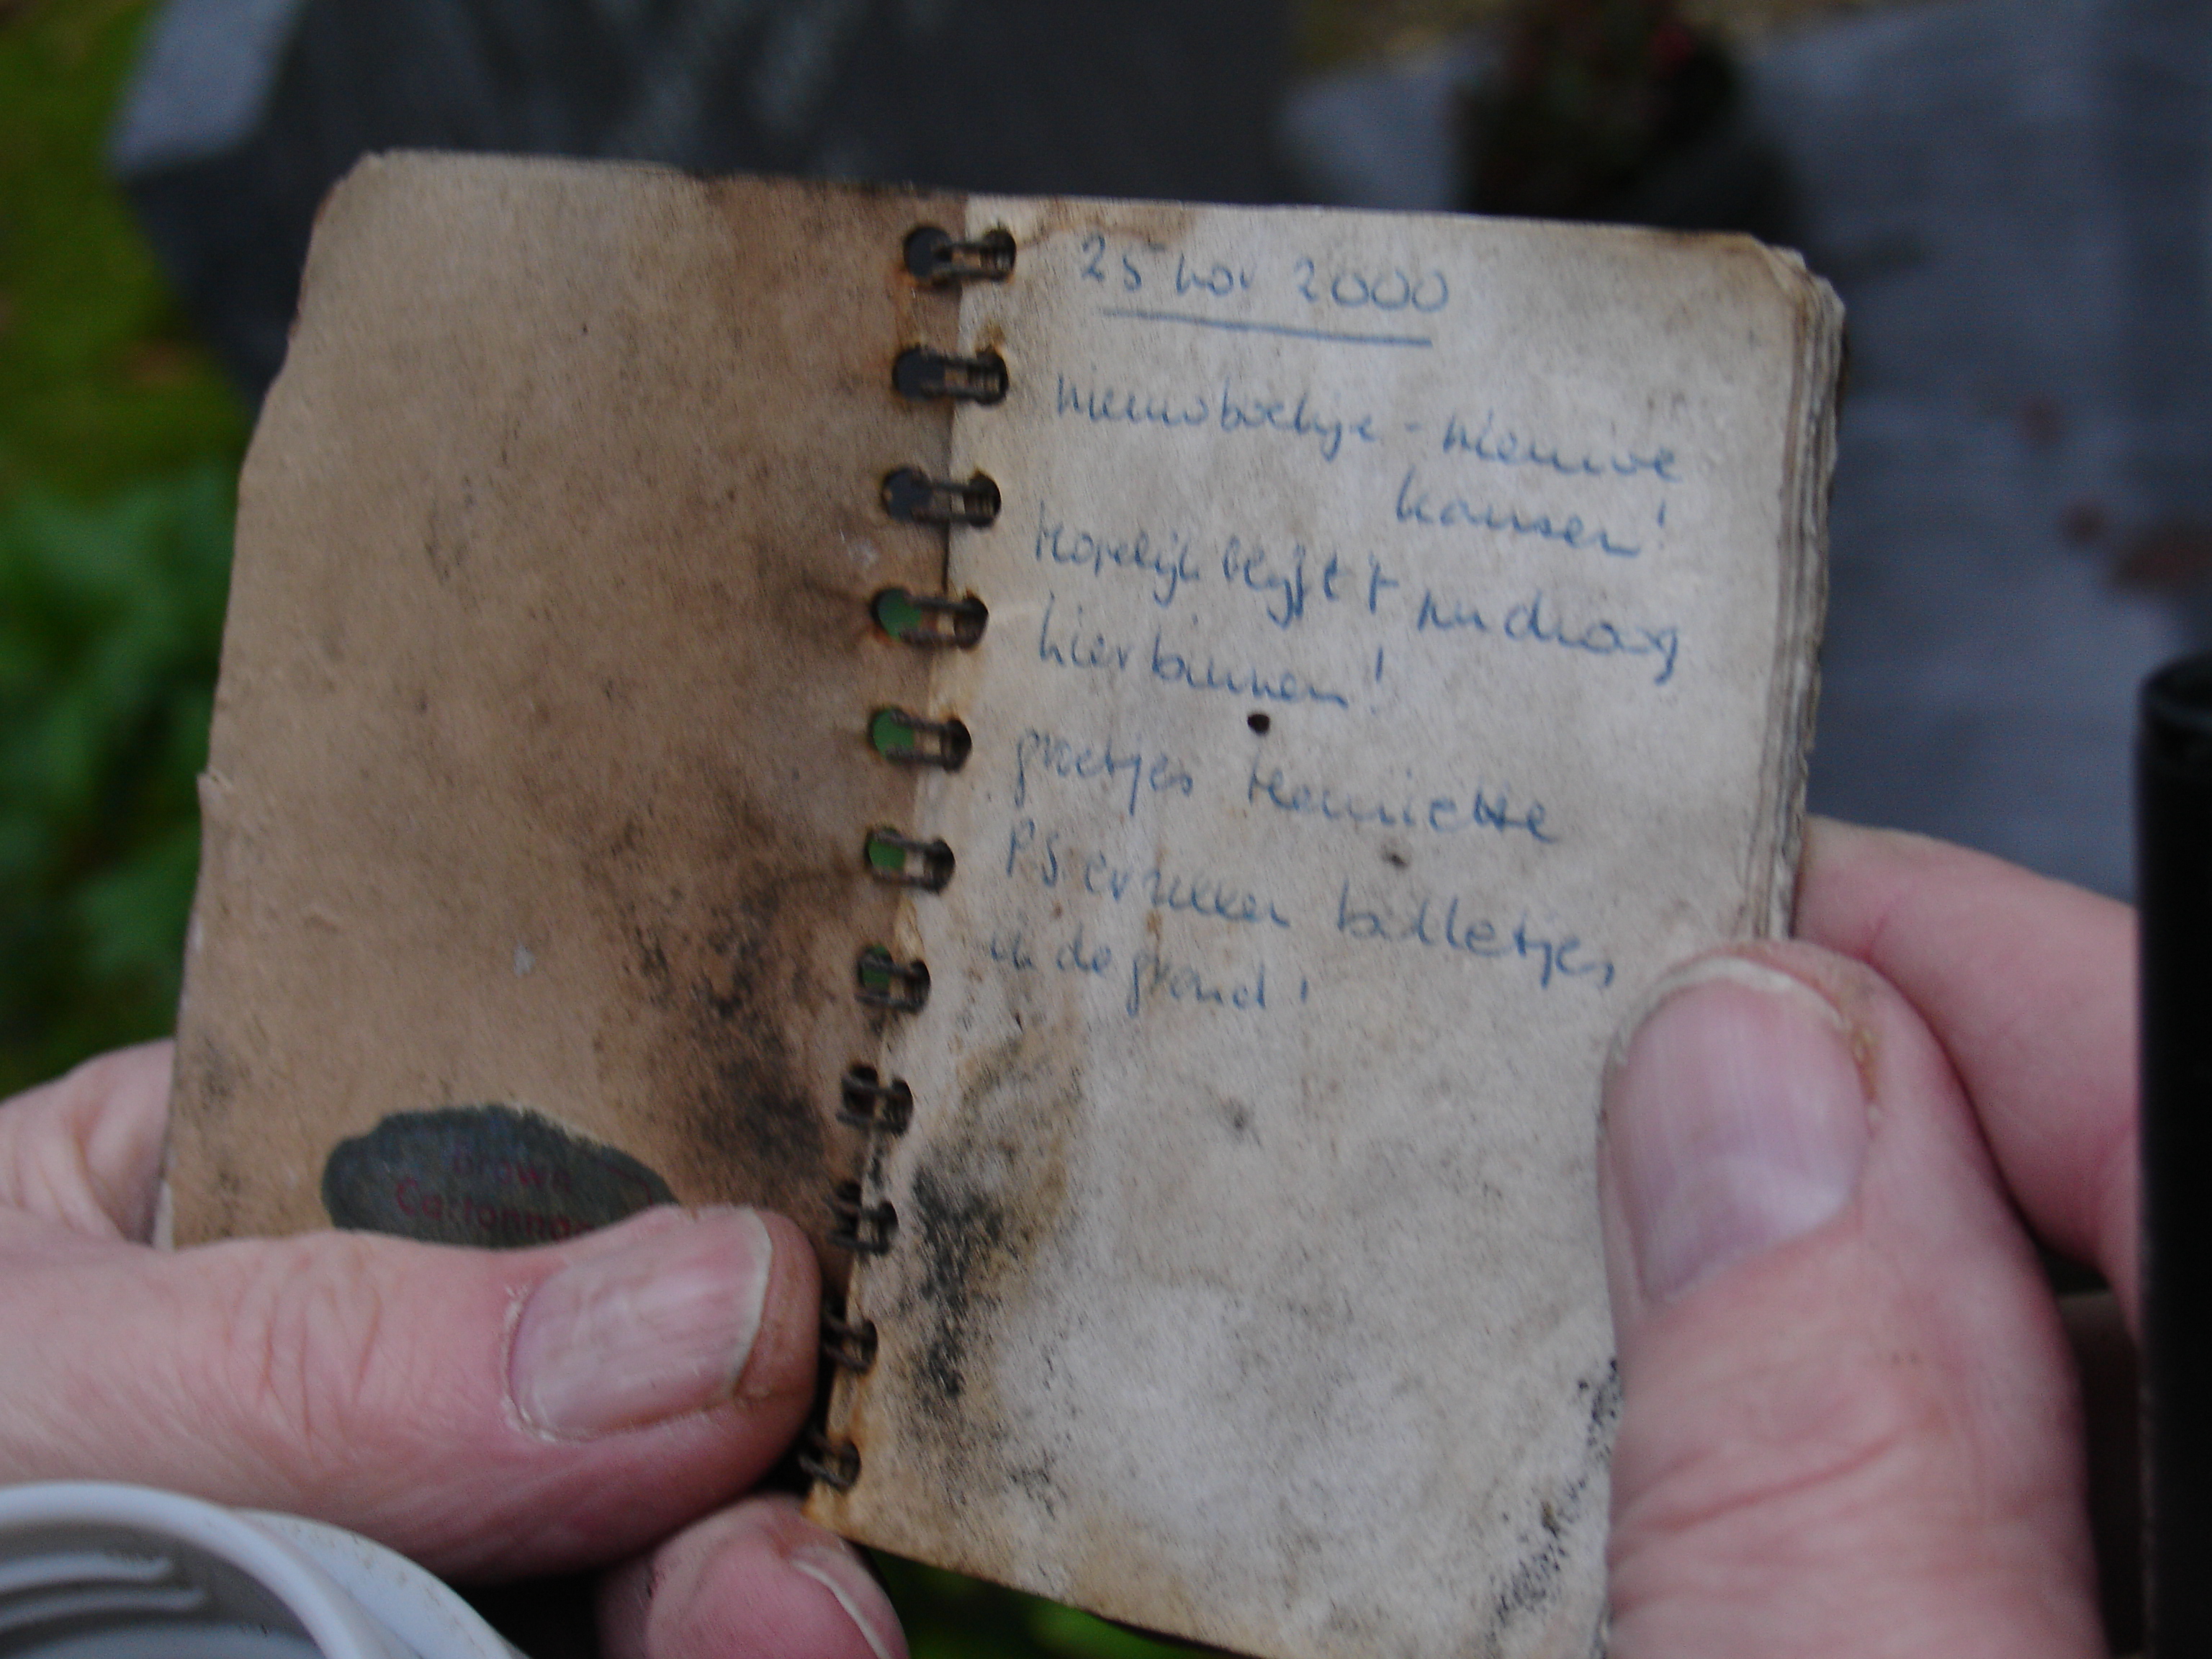 25 nov 2000
nieuw boekje - nieuwe
kansen!
Hopelijk blijft 't nu droog
hierbinnen!
groetjes Henriette
PS er zitten bolletjes
in de grond!
Brown
Cartonnag